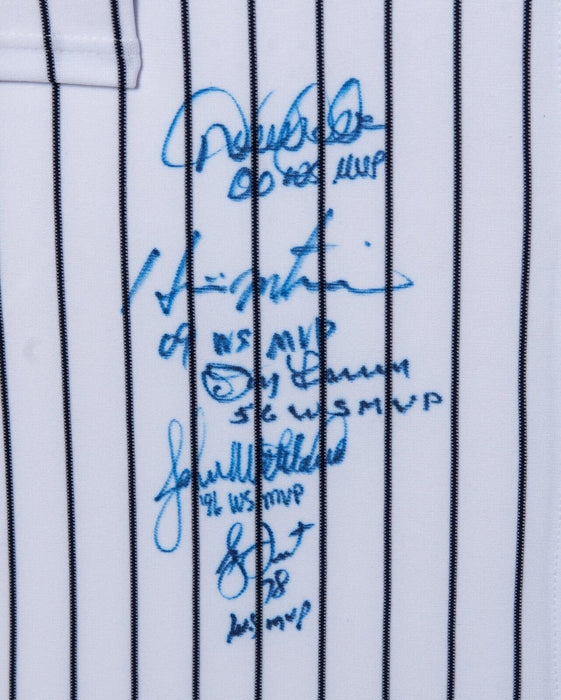 Derek Jeter
00 WS MVP
Hideki Matsui
09 WS MVP
Don Larsen
56 WS MVP
John Wetteland
'96 WS MVP
B Dent
78
WS MVP